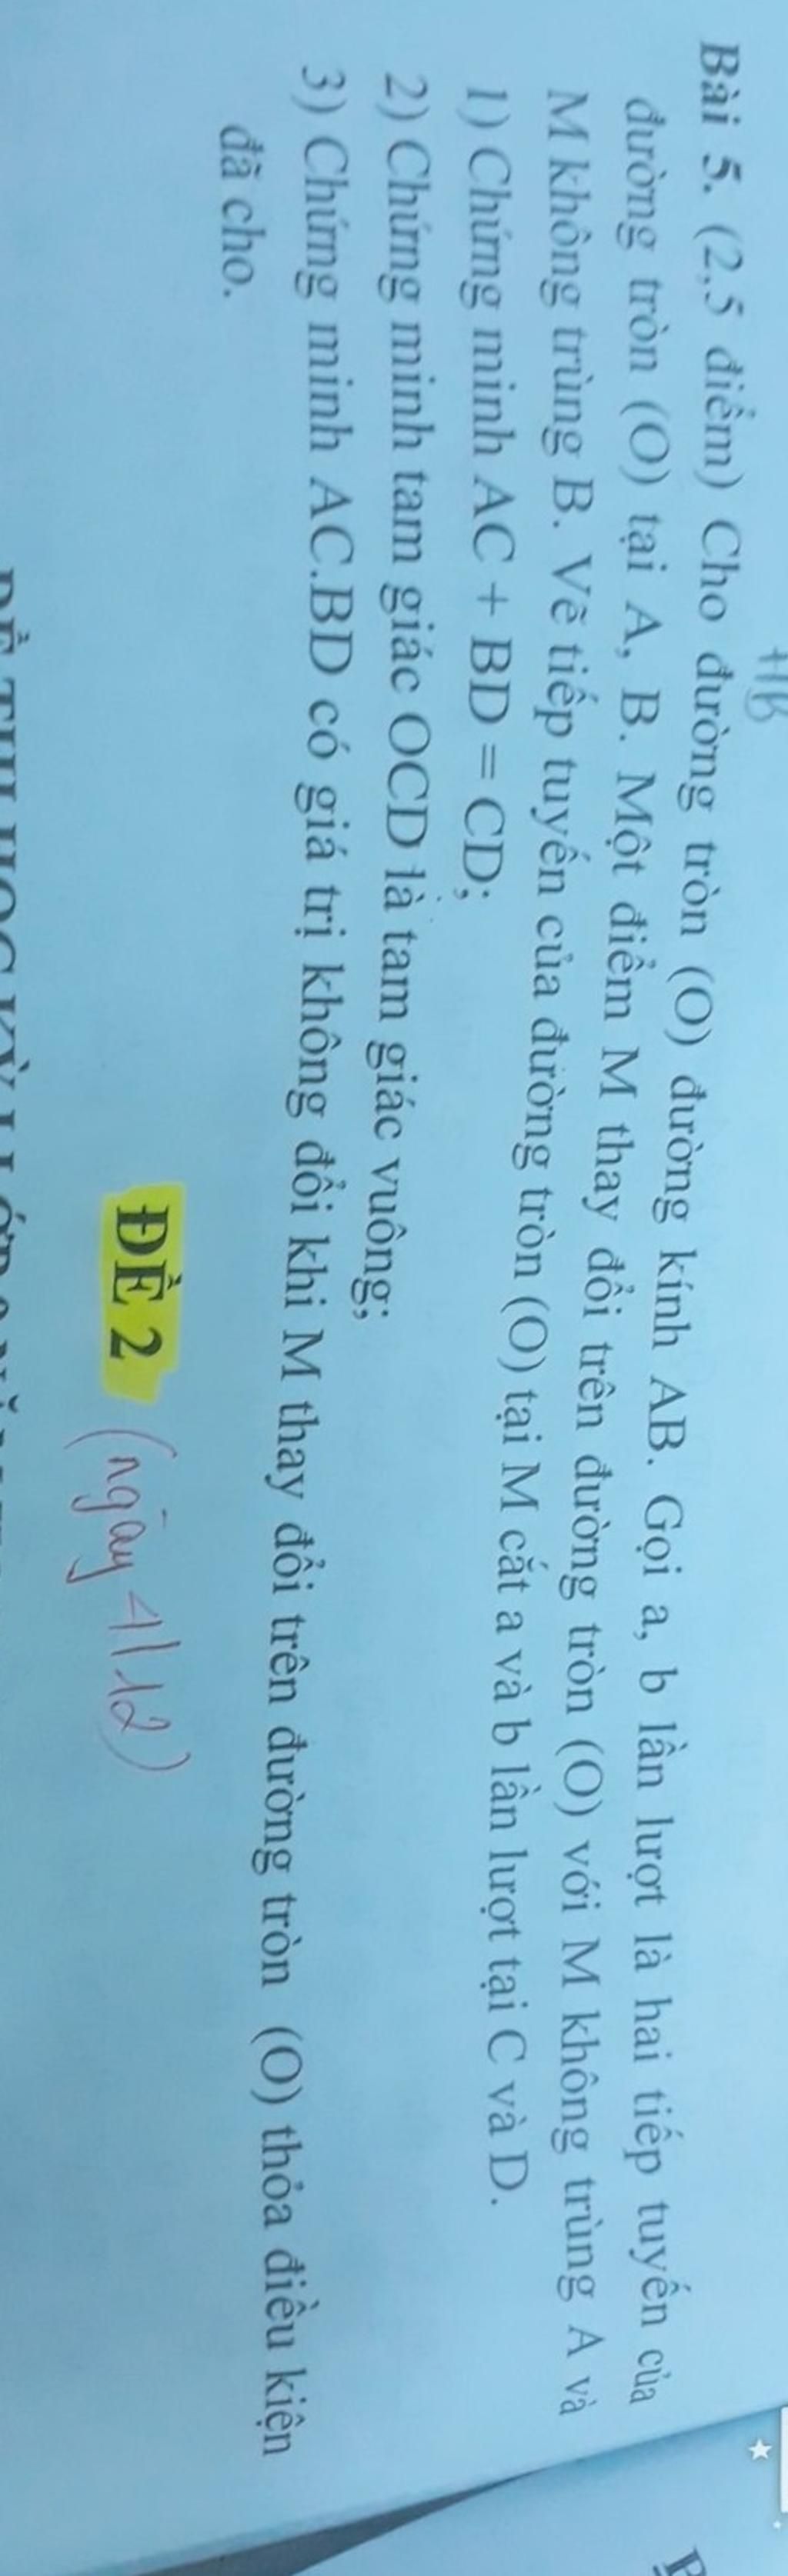 HB
Bài 5. (2,5 điểm) Cho đường tròn (O) đường kính AB. Gọi a, b lần lượt là hai tiếp tuyến của
đường tròn (O) tại A, B. Một điểm M thay đổi trên đường tròn (O) với M không trùng A và
M không trùng B. Vẽ tiếp tuyến của đường tròn (O) tại M cắt a và b lần lượt tại C và D.
1) Chứng minh AC + BD = CD;
2) Chứng minh tam giác OCD là tam giác vuông;
3) Chứng minh AC.BD có giá trị không đổi khi M thay đổi trên đường tròn (O) thỏa điều kiện
đã cho.
ĐỀ 2 (ngày 4/12)